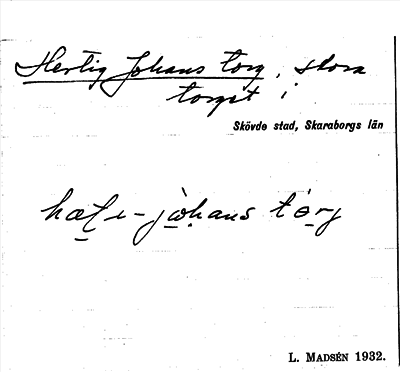 Hertig Johans torg, stora
torget i
Skövde stad, Skaraborgs län
hæʈɩ-jòhans tòrj
L. MADSÉN 1932.